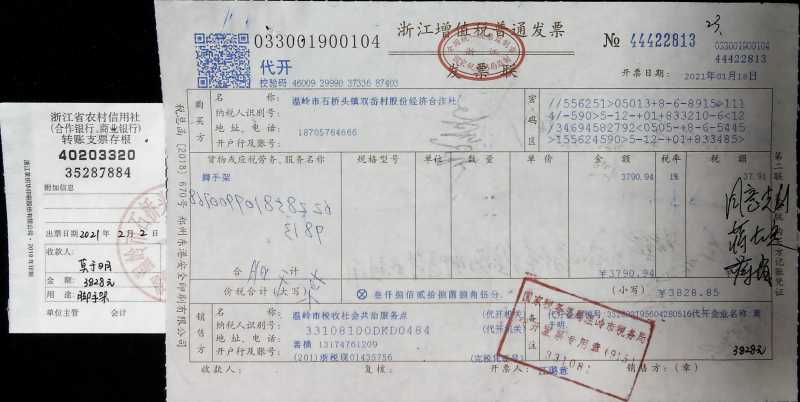 浙江省农村信用社
(合作银行、商业银行)
转账支票存根
40203320
35287884
附加信息
出票日期 2021年 2月 2日
收款人:
莫于明
金 额: 3828元
用 途: 脚手架
单位主管 会计
浙江增值税普通发票
033001900104
代开
校验码 46009 29990 37336 87403
发票联
№ 44422813
033001900104
44422813
开票日期: 2021年01月18日
购买方
名 称: 温岭市石桥头镇双岙村股份经济合作社
纳税人识别号:
地 址、电 话: 18705764666
开户行及账号:
密码区
//556251>05013+8-6-8915>111
4/-590>5-12-+01+833210-6<12
/34694582792<0505-8+6-5445
>155624590>5-12-+01+833485>
货物或应税劳务、服务名称 规格型号 单位 数量 单价 金 额 税率 税 额
脚手架 3790.94 1% 37.91
合 计 ¥3790.94
价税合计(大写) 叁仟捌佰贰拾捌圆捌角伍分 (小写) ¥3828.85
销售方
名 称: 温岭市税收社会共治服务点 (代开机关)
纳税人识别号: 33108100DKD0484 (代开机关)
地 址、电 话: 箬横 13174761209
开户行及账号: (201)浙税现01435756 (完税凭证号)
备注
3828元
收款人: 复核: 开票人: 销售方:(章)